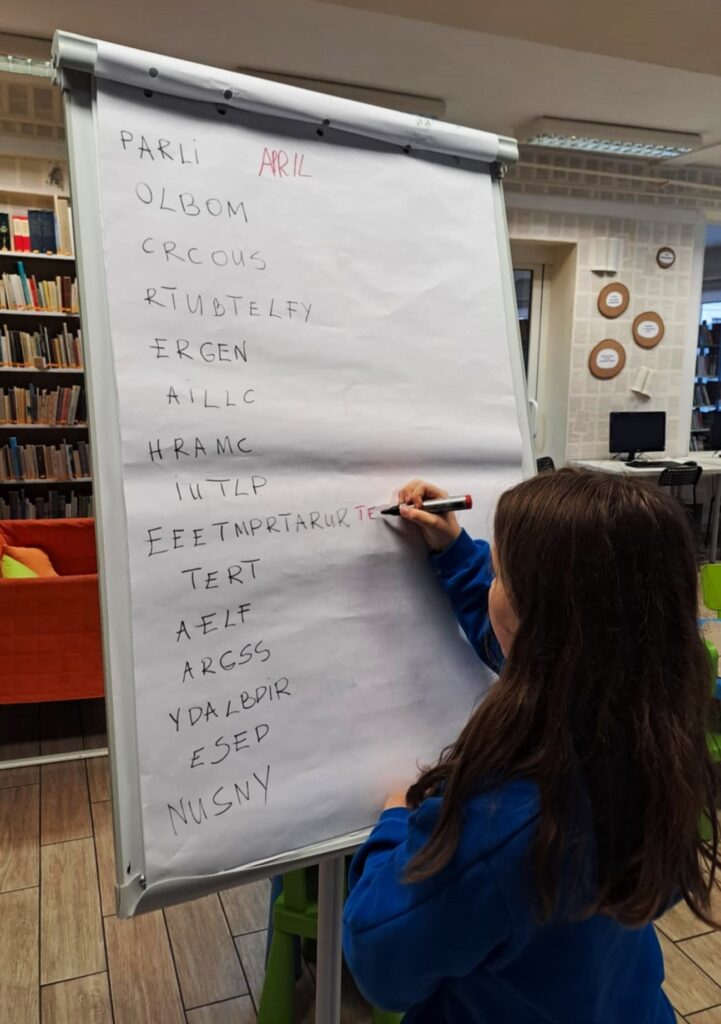 PARLI APRIL
OLBOM
CRCOUS
RTUBTELFY
ERGEN
AILLC
HRAMC
IUTLP
EEETMPRTARUR TE
TERT
AELF
ARGSS
YDALBDIR
ESED
NUSNY